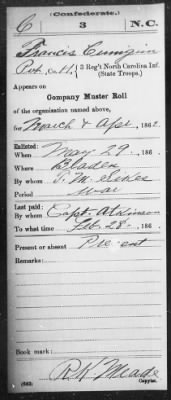 (Confederate.)
C 3 N.C.
Francis
Pvt, Co. H, 3 Reg't North Carolina Inf.
(State Troops.)
Appears on
Company Muster Roll
of the organization named above,
for March & Apr, 1862.
Enlisted:
When May 29, 186 .
Where Bladen
By whom T. M. Sikes
Period War
Last paid:
By whom Capt. Atkinson
To what time Feb. 28, 186 .
Present or absent Present
Remarks:
Book mark:
R. H. Meade
Copyist.